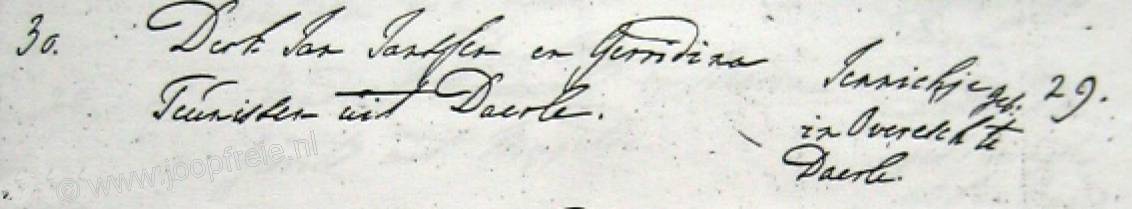 30. Derk Jan Janssen en Gerridina
Teunissen uit Daerle.
Jennichje geb. 29.
in Overesch te
Daerle.
© www.joopfreie.nl